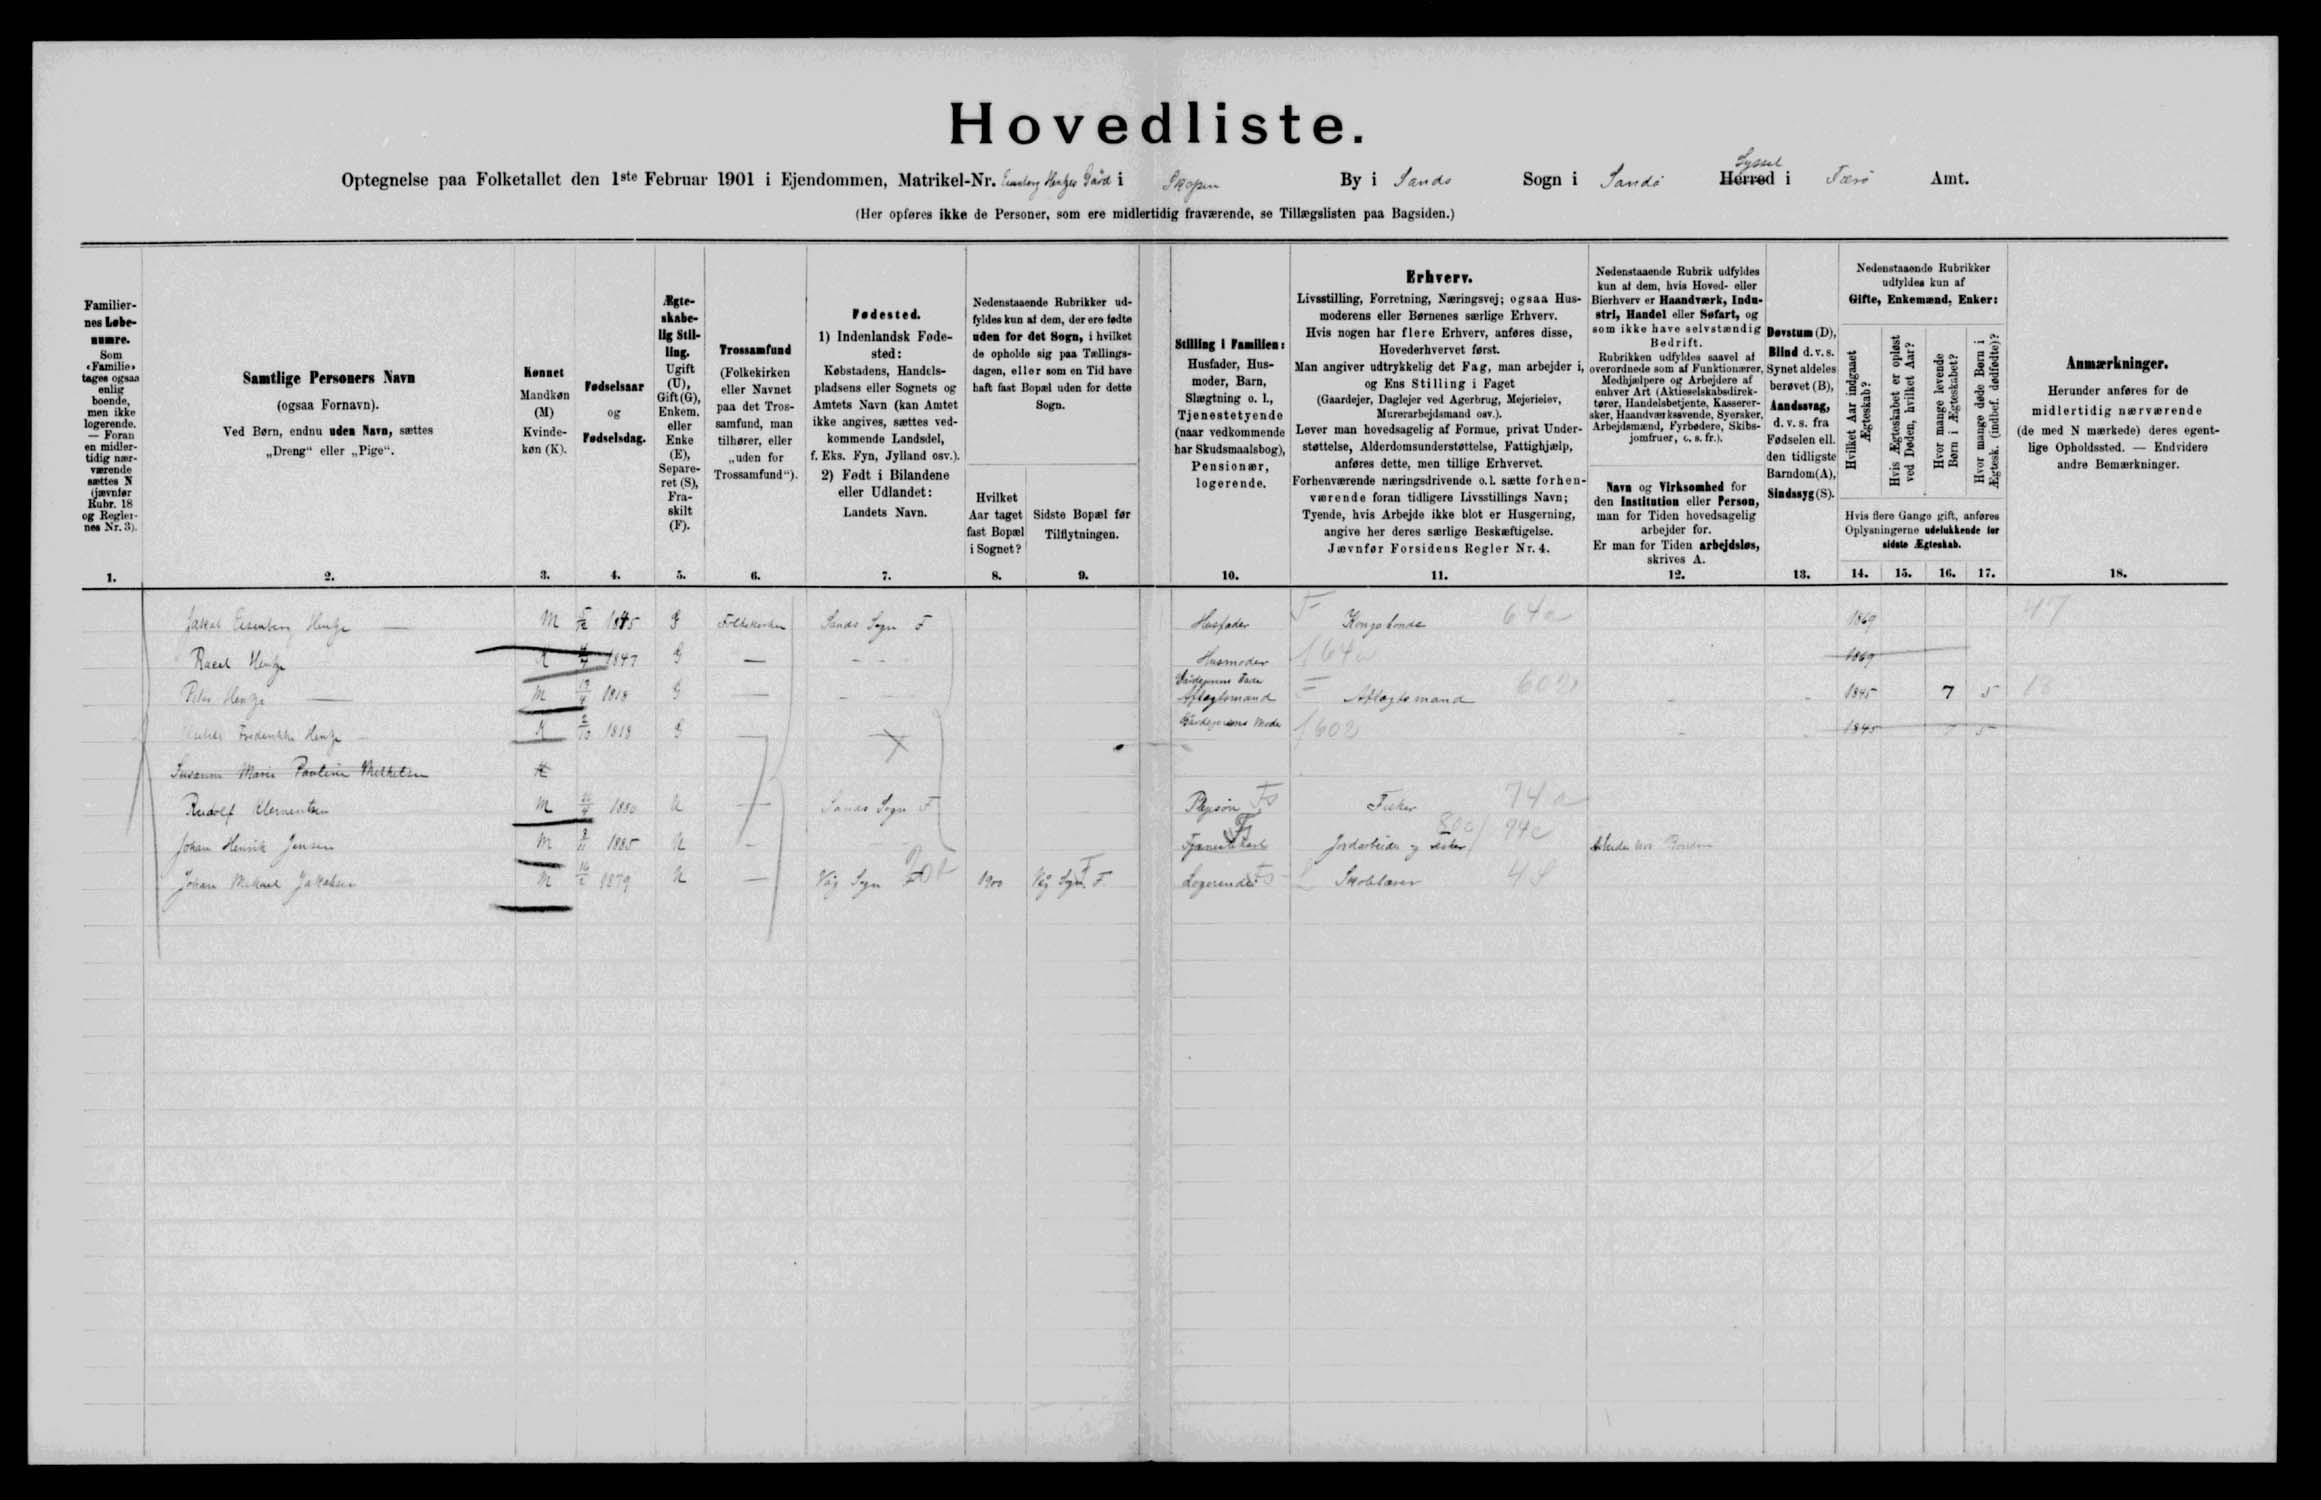 Hovedliste.
Syssel
Optegnelse paa Folketallet den 1ste Februar 1901 i Ejendommen, Matrikel-Nr. Hentzes Gård i Skopen By i Sands Sogn i Sandø Herred i Færø Amt.
(Her opføres ikke de Personer, som ere midlertidig fraværende, se Tillægslisten paa Bagsiden.)
Familier-
nes Løbe-
numre.
Som
«Familie»
tages ogsaa
enlig
boende,
men ikke
logerende.
— Foran
en midler-
tidig nær-
værende
sættes N
(jævnfør
Rubr. 18
og Regler-
nes Nr. 3).
1.
Samtlige Personers Navn
(ogsaa Fornavn).
Ved Børn, endnu uden Navn, sættes
„Dreng“ eller „Pige“.
2.
Kønnet
Mandkøn
(M)
Kvinde-
køn (K).
3.
Fødselsaar
og
Fødselsdag.
4.
Ægte-
skabe-
lig Stil-
ling.
Ugift
(U),
Gift (G),
Enkem.
eller
Enke
(E),
Separe-
ret (S),
Fra-
skilt
(F).
5.
Trossamfund
(Folkekirken
eller Navnet
paa det Tros-
samfund, man
tilhører, eller
„uden for
Trossamfund“).
6.
Fødested.
1) Indenlandsk Føde-
sted:
Købstadens, Handels-
pladsens eller Sognets og
Amtets Navn (kan Amtet
ikke angives, sættes ved-
kommende Landsdel,
f. Eks. Fyn, Jylland osv.).
2) Født i Bilandene
eller Udlandet:
Landets Navn.
7.
Nedenstaaende Rubrikker ud-
fyldes kun af dem, der ere fødte
uden for det Sogn, i hvilket
de opholde sig paa Tællings-
dagen, eller som en Tid have
haft fast Bopæl uden for dette
Sogn.
Hvilket
Aar taget
fast Bopæl
i Sognet?
8.
Sidste Bopæl før
Tilflytningen.
9.
Stilling i Familien:
Husfader, Hus-
moder, Barn,
Slægtning o. l.,
Tjenestetyende
(naar vedkommende
har Skudsmaalsbog),
Pensionær,
logerende.
10.
Erhverv.
Livsstilling, Forretning, Næringsvej; ogsaa Hus-
moderens eller Børnenes særlige Erhverv.
Hvis nogen har flere Erhverv, anføres disse,
Hovederhvervet først.
Man angiver udtrykkelig det Fag, man arbejder i,
og Ens Stilling i Faget
(Gaardejer, Daglejer ved Agerbrug, Mejerielev,
Murerarbejdsmand osv.).
Lever man hovedsagelig af Formue, privat Under-
støttelse, Alderdomsunderstøttelse, Fattighjælp,
anføres dette, men tillige Erhvervet.
Forhenværende næringsdrivende o. l. sætte forhen-
værende foran tidligere Livsstillings Navn;
Tyende, hvis Arbejde ikke blot er Husgerning,
angive her deres særlige Beskæftigelse.
Jævnfør Forsidens Regler Nr. 4.
11.
Nedenstaaende Rubrik udfyldes
kun af dem, hvis Hoved- eller
Bierhverv er Haandværk, Indu-
stri, Handel eller Søfart, og
som ikke have selvstændig
Bedrift.
Rubrikken udfyldes saavel af
overordnede som af Funktionærer,
Medhjælpere og Arbejdere af
enhver Art (Aktieselskabsdirek-
tører, Handelsbetjente, Kasserer-
sker, Haandværkssvende, Syersker,
Arbejdsmænd, Fyrbødere, Skibs-
jomfruer, o. s. fr.).
Navn og Virksomhed for
den Institution eller Person,
man for Tiden hovedsagelig
arbejder for.
Er man for Tiden arbejdsløs,
skrives A.
12.
Døvstum (D),
Blind d. v. s.
Synet aldeles
berøvet (B),
Aandssvag,
d. v. s. fra
Fødselen ell.
den tidligste
Barndom (A),
Sindssyg (S).
13.
Nedenstaaende Rubrikker
udfyldes kun af
Gifte, Enkemænd, Enker:
Hvilket Aar indgaaet
Ægteskab?
Hvis Ægteskabet er opløst
ved Døden, hvilket Aar?
Hvor mange levende
Børn i Ægteskabet?
Hvor mange døde Børn i
Ægtesk. (indbef. dødfødte)?
Hvis flere Gange gift, anføres
Oplysningerne udelukkende for
sidste Ægteskab.
14. 15. 16. 17.
Anmærkninger.
Herunder anføres for de
midlertidig nærværende
(de med N mærkede) deres egent-
lige Opholdssted. — Endvidere
andre Bemærkninger.
18.
Jakob Eisenberg Hentze M 1845 G Folkekirken Sands Sogn F Husfader F Kongsbonde 64a 1869 47
Rasel Hentze K 1847 G — Husmoder 64a 1869
Peter Hentze M 1818 G — Gårdejerens Fader Aftægtsmand F Aftægtsmand 602 1845 7 5 18
Frederikke Hentze K 2/10 1818 G — Gårdejerens Moder 602 1845 7 5
Susanne Marie Pauline Mikkelsen K
Rudolf Klementsen M 1880 U — Sands Sogn F Plejesøn Fs Fisker 74a
Johan Henrik Jensen M 1885 U — Tjenestekarl Fs Jordarbeider og Fisker 800/74c Arbeider hos Bonden
Johan Mikael Jakobsen M 1879 U — Våg Sogn F 1900 Våg Sogn F. Logerende Fs Skolelærer 4